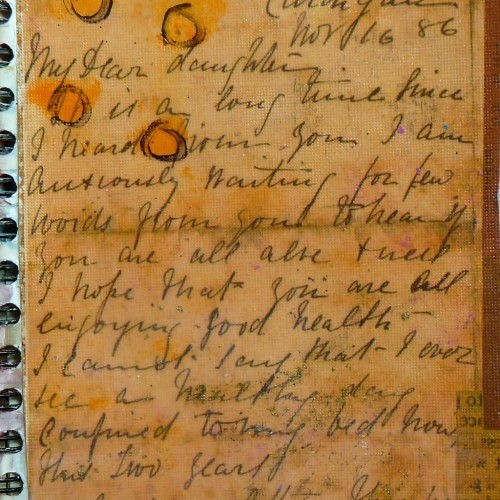 Nov 16 86
My Dear daughter
is a long time since
I heard from you I am
anxiously waiting for few
words from you to hear if
you are all alive & well
I hope that you are all
enjoying good health
I cannot say that I ever
see a healthy day
Confined to my bed now
this two years